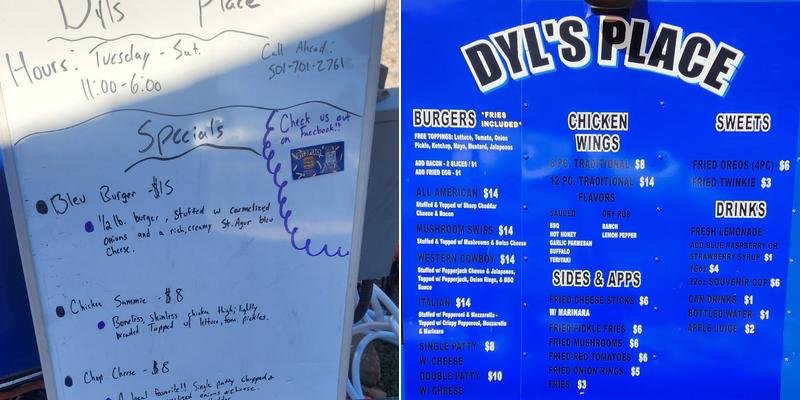 Dyl's Place
Hours: Tuesday - Sat.
11:00-6:00
Call Ahead:
501-701-2761
Specials
Check us out
on Facebook!!
Bleu Burger - $15
1/2 lb. burger, stuffed w carmelized
onions and a rich, creamy St. Agur bleu
cheese.
Chicken Sammie - $8
Boneless, skinless chicken thigh, lightly
breaded. Topped w/ lettuce, tom, pickles.
Chop Cheese - $8
A local favorite!! Single patty chopped &
onions & cheese.
DYL'S PLACE
BURGERS *FRIES
INCLUDED*
FREE TOPPINGS: Lettuce, Tomato, Onion
Pickle, Ketchup, Mayo, Mustard, Jalapenos
ADD BACON - 2 SLICES / $1
ADD FRIED EGG - $1
ALL AMERICAN $14
Stuffed & Topped w/ Sharp Cheddar
Cheese & Bacon
MUSHROOM SWISS $14
Stuffed & Topped w/ Mushrooms & Swiss Cheese
WESTERN COWBOY $14
Stuffed w/ Pepperjack Cheese & Jalapenos,
Topped w/ Pepperjack, Onion Rings, & BBQ
Sauce
ITALIAN $14
Stuffed w/ Pepperoni & Mozzarella -
Topped w/ Crispy Pepperoni, Mozzarella
& Marinara
SINGLE PATTY $8
W. CHEESE
DOUBLE PATTY $10
W. CHEESE
CHICKEN
WINGS
6 PC. TRADITIONAL $8
12 PC. TRADITIONAL $14
FLAVORS
SAUCED
BBQ
HOT HONEY
GARLIC PARMESAN
BUFFALO
TERIYAKI
DRY RUB
RANCH
LEMON PEPPER
SIDES & APPS
FRIED CHEESE STICKS $6
W/ MARINARA
FRIED PICKLE FRIES $6
FRIED MUSHROOMS $6
FRIED RED TOMATOES $6
FRIED ONION RINGS $5
FRIES $3
SWEETS
FRIED OREOS (4PC) $6
FRIED TWINKIE $3
DRINKS
FRESH LEMONADE
ADD BLUE RASPBERRY OR
STRAWBERRY SYRUP $1
16oz $4
32oz SOUVENIR CUP $6
CAN DRINKS $1
BOTTLED WATER $1
APPLE JUICE $2